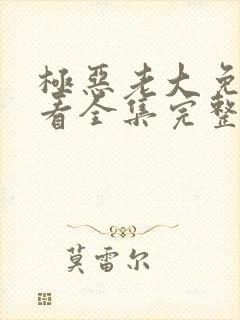 極惡老大免
看全集完整
莫雷尔